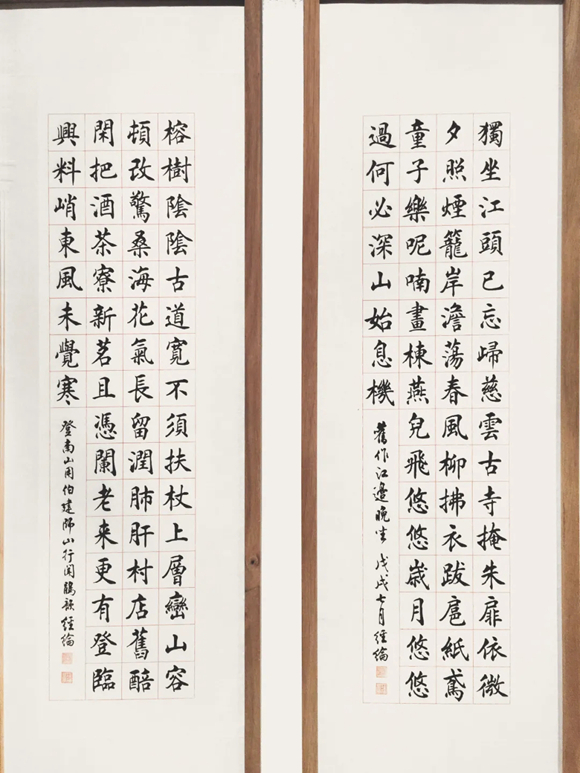 獨坐江頭已忘歸慈雲古寺掩朱扉依微
夕照煙籠岸澹蕩春風柳拂衣跋扈紙鳶
童子樂呢喃畫棟燕兒飛悠悠歲月悠悠
過何必深山始息機
舊作江邊晚坐 戊戌七月 經綸
榕樹陰陰古道寬不須扶杖上層巒山容
頓改驚桑海花氣長留潤肺肝村店舊醅
閑把酒茶寮新茗且憑闌老来更有登臨
興料峭東風未覺寒
登山用伯建歸山行聞鵑韻 經綸